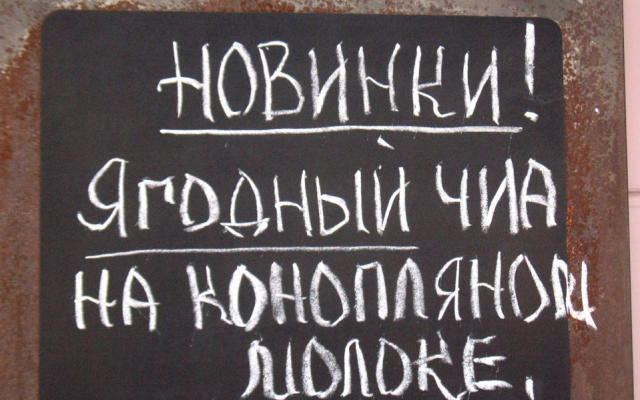 НОВИНКИ!
ЯГОДНЫЙ ЧИА
НА КОНОПЛЯНОМ
МОЛОКЕ,